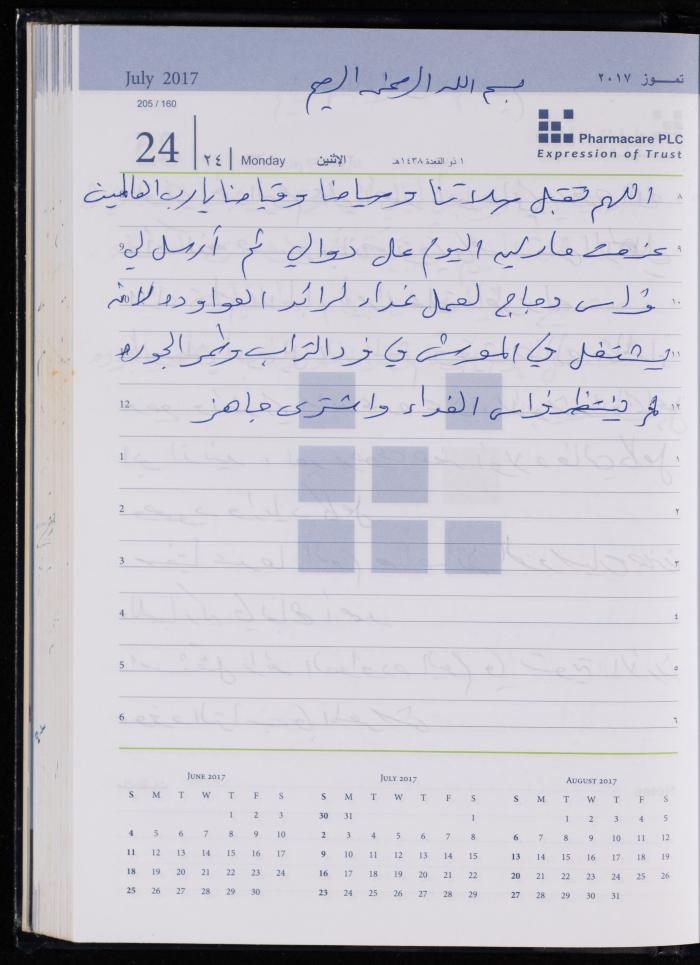 July 2017
بسم الله الرحمن الرحيم
تمــوز ٢٠١٧
205 / 160
24
٢٤
Monday
الإثنين
١ ذو القعدة ١٤٣٨هـ
Pharmacare PLC
Expression of Trust
اللهم تقبل صلاتنا وصيامنا وقيامنا يارب العالمين
عزمت ماركيه اليوم على دوالي ثم أرسل لي
فراس دجاج لعمل غداء لرائد العواوده لانه
يشتغل في الموتش في فرد التراب وطمر الجوره
فراس الغداء واشترى جاهز
٨
٩
١٠
١١
12 ١٢
1 ١
2 ٢
3 ٣
4 ٤
5 ٥
6 ٦
June 2017
S M T W T F S
1 2 3
4 5 6 7 8 9 10
11 12 13 14 15 16 17
18 19 20 21 22 23 24
25 26 27 28 29 30
July 2017
S M T W T F S
30 31 1
2 3 4 5 6 7 8
9 10 11 12 13 14 15
16 17 18 19 20 21 22
23 24 25 26 27 28 29
August 2017
S M T W T F S
1 2 3 4 5
6 7 8 9 10 11 12
13 14 15 16 17 18 19
20 21 22 23 24 25 26
27 28 29 30 31